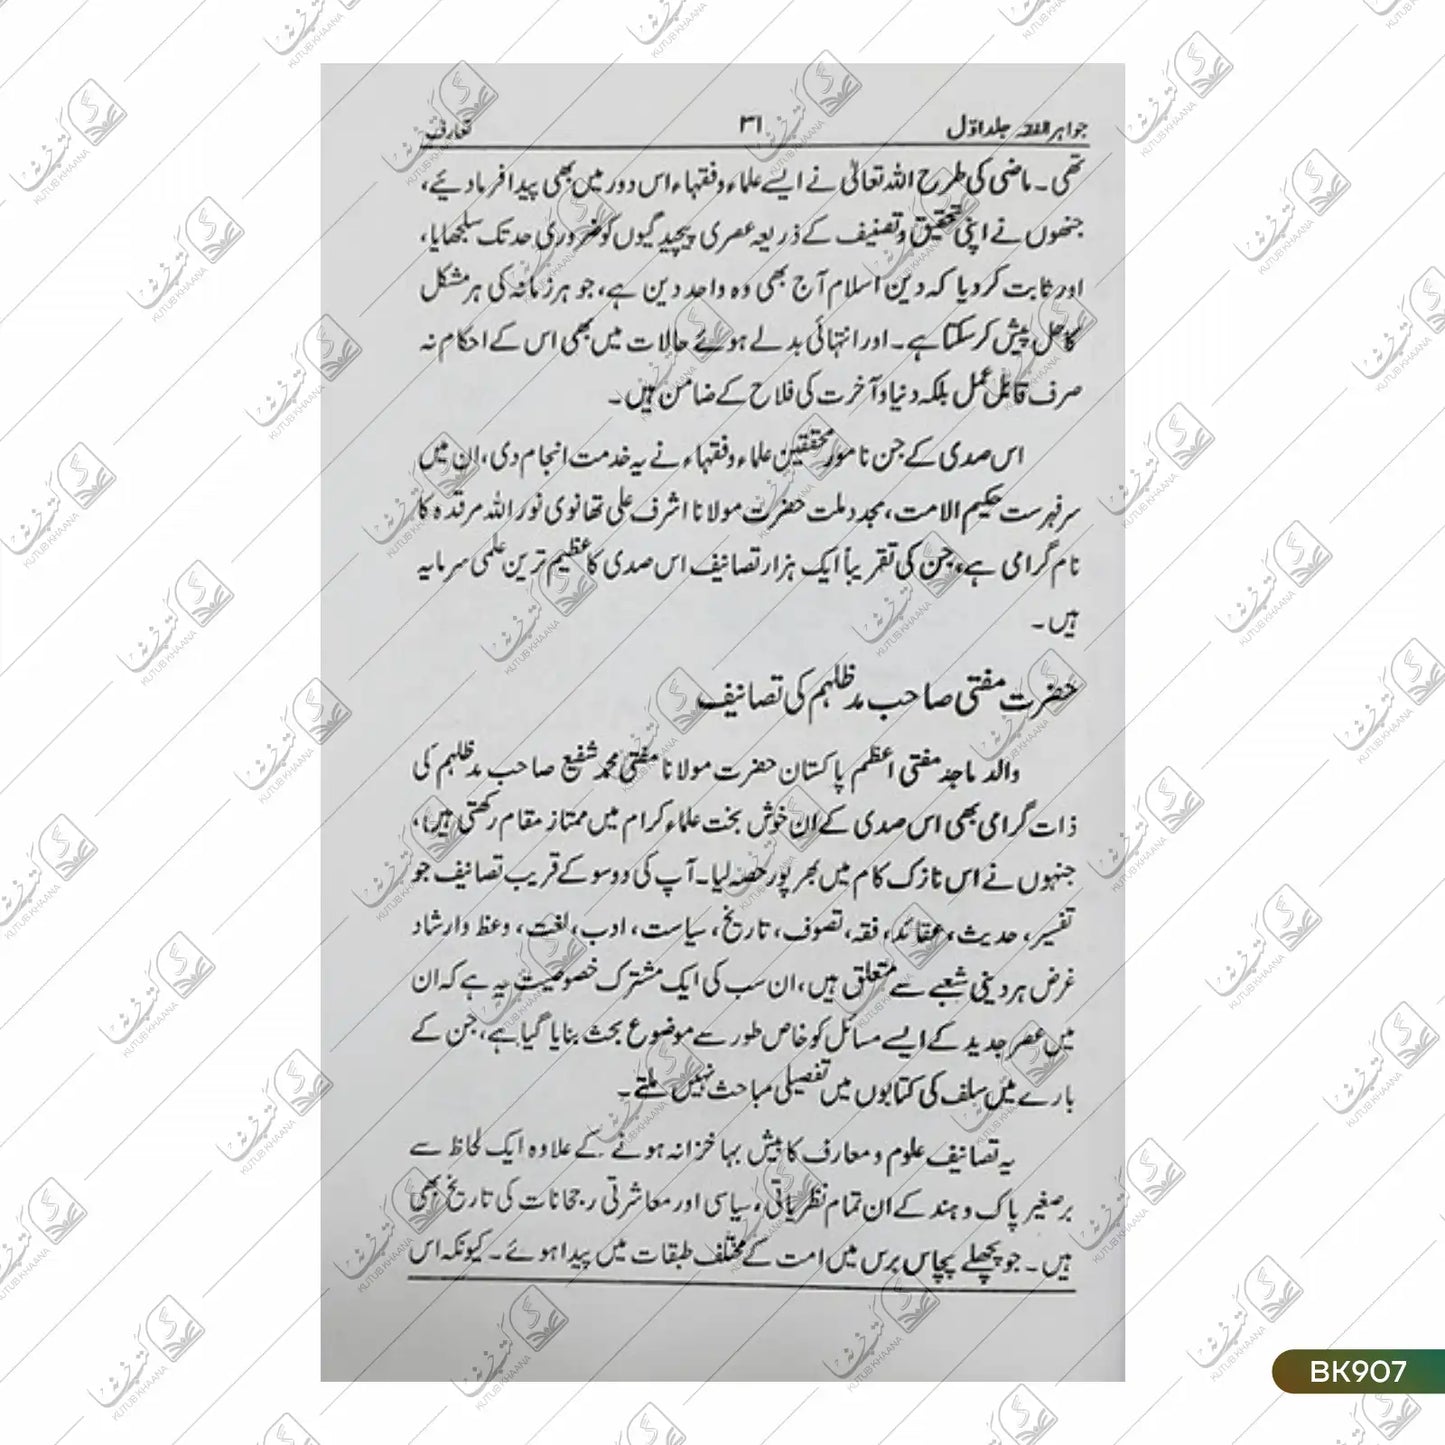 جواہر الفقہ جلد اوّل ۳۱ تعارف
تھی۔ ماضی کی طرح اللہ تعالیٰ نے ایسے علماء و فقہاء اس دور میں بھی پیدا فرمادئیے،
جنھوں نے اپنی تحقیق و تصنیف کے ذریعہ عصری پیچیدگیوں کو ضروری حد تک سلجھایا،
اور ثابت کردیا کہ دین اسلام آج بھی وہ واحد دین ہے، جو ہر زمانہ کی ہر مشکل
کا حل پیش کرسکتا ہے۔ اور انتہائی بدلے ہوئے حالات میں بھی اس کے احکام نہ
صرف قابل عمل بلکہ دنیا و آخرت کی فلاح کے ضامن ہیں۔
اس صدی کے جن نامور محققین علماء و فقہاء نے یہ خدمت انجام دی، ان میں
سرفہرست حکیم الامت، مجدد ملت حضرت مولانا اشرف علی تھانوی نور اللہ مرقدہ کا
نام گرامی ہے، جن کی تقریباً ایک ہزار تصانیف اس صدی کا عظیم ترین علمی سرمایہ
ہیں۔
حضرت مفتی صاحب مدظلہم کی تصانیف
والد ماجد مفتی اعظم پاکستان حضرت مولانا مفتی محمد شفیع صاحب مدظلہم کی
ذات گرامی بھی اس صدی کے ان خوش بخت علماء کرام میں ممتاز مقام رکھتی ہیں،
جنہوں نے اس نازک کام میں بھرپور حصہ لیا۔ آپ کی دوسو کے قریب تصانیف جو
تفسیر، حدیث، عقائد، فقہ، تصوف، تاریخ، سیاست، ادب، لغت، وعظ و ارشاد
غرض ہر دینی شعبے سے متعلق ہیں، ان سب کی ایک مشترک خصوصیت یہ ہے کہ ان
میں عصر جدید کے ایسے مسائل کو خاص طور سے موضوع بحث بنایا گیا ہے، جن کے
بارے میں سلف کی کتابوں میں تفصیلی مباحث نہیں ملتے۔
یہ تصانیف علوم و معارف کا بیش بہا خزانہ ہونے کے علاوہ ایک لحاظ سے
برصغیر پاک و ہند کے ان تمام نظریاتی، سیاسی اور معاشرتی رجحانات کی تاریخ بھی
ہیں۔ جو پچھلے پچاس برس میں امت کے مختلف طبقات میں پیدا ہوئے۔ کیونکہ اس
BK907
کتب خانہ
KUTUB KHAANA